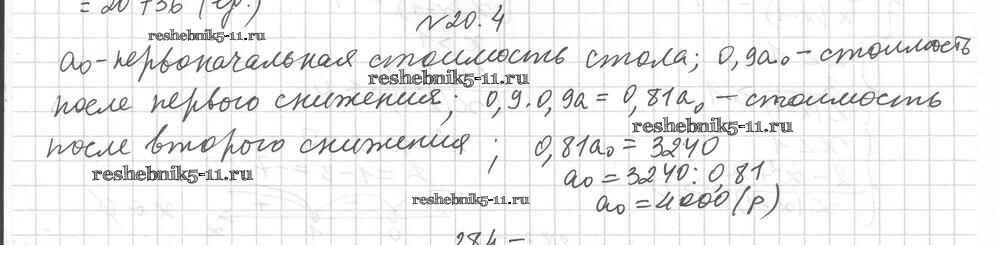 = 20736 (гр.)
reshebnik5-11.ru
№20.4
a₀-первоначальная стоимость стола; 0,9a₀ - стоимость
reshebnik5-11.ru
после первого снижения; 0,9·0,9a = 0,81a₀ - стоимость
reshebnik5-11.ru
после второго снижения ; 0,81a₀ = 3240
reshebnik5-11.ru
a₀ = 3240 : 0,81
reshebnik5-11.ru
a₀ = 4000 (р)